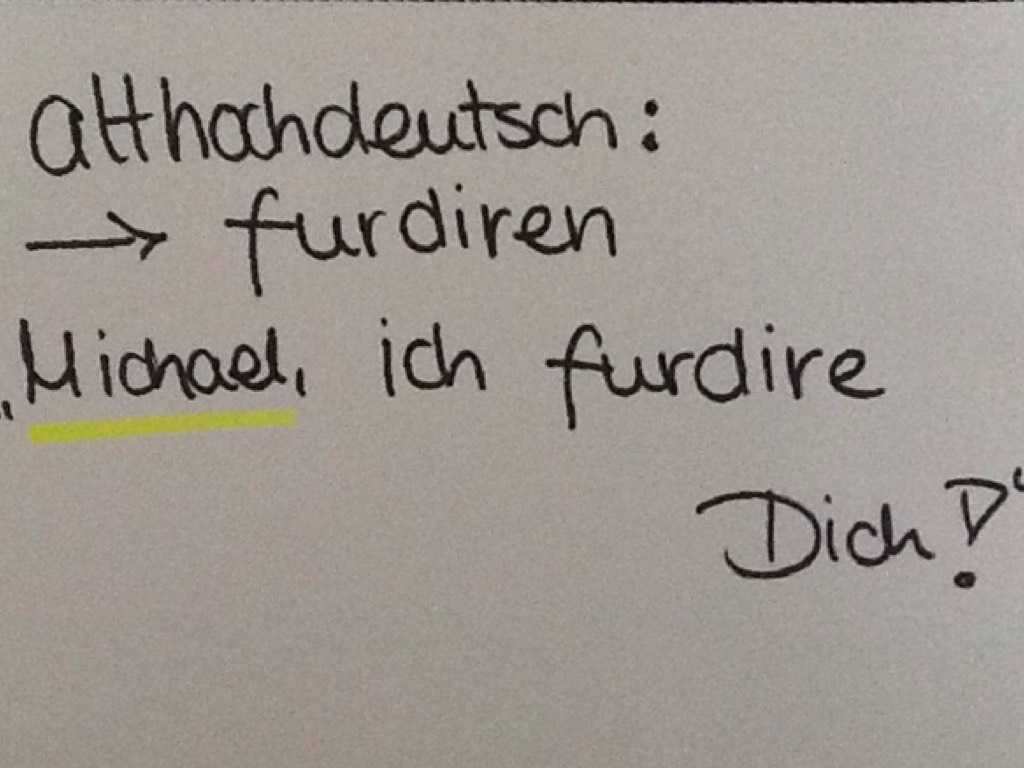 althochdeutsch:
→ furdiren
„Michael, ich furdire
Dich!“